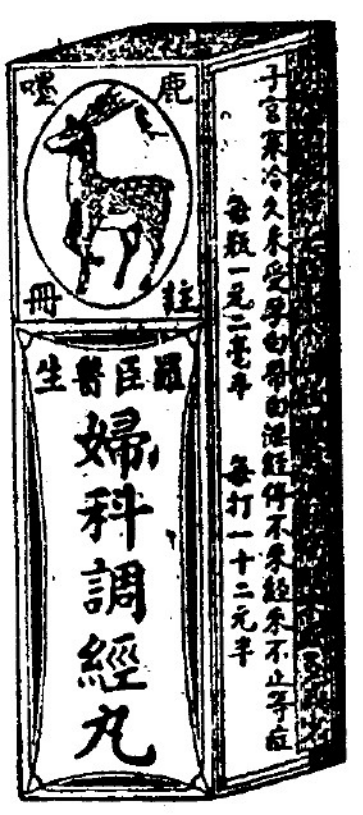 鹿嘜
註冊
羅臣醫生
婦科調經丸
子宮寒冷久未受孕白帶白淫經停不來經來不止等症
每瓶一元二毫半 每打一十二元半